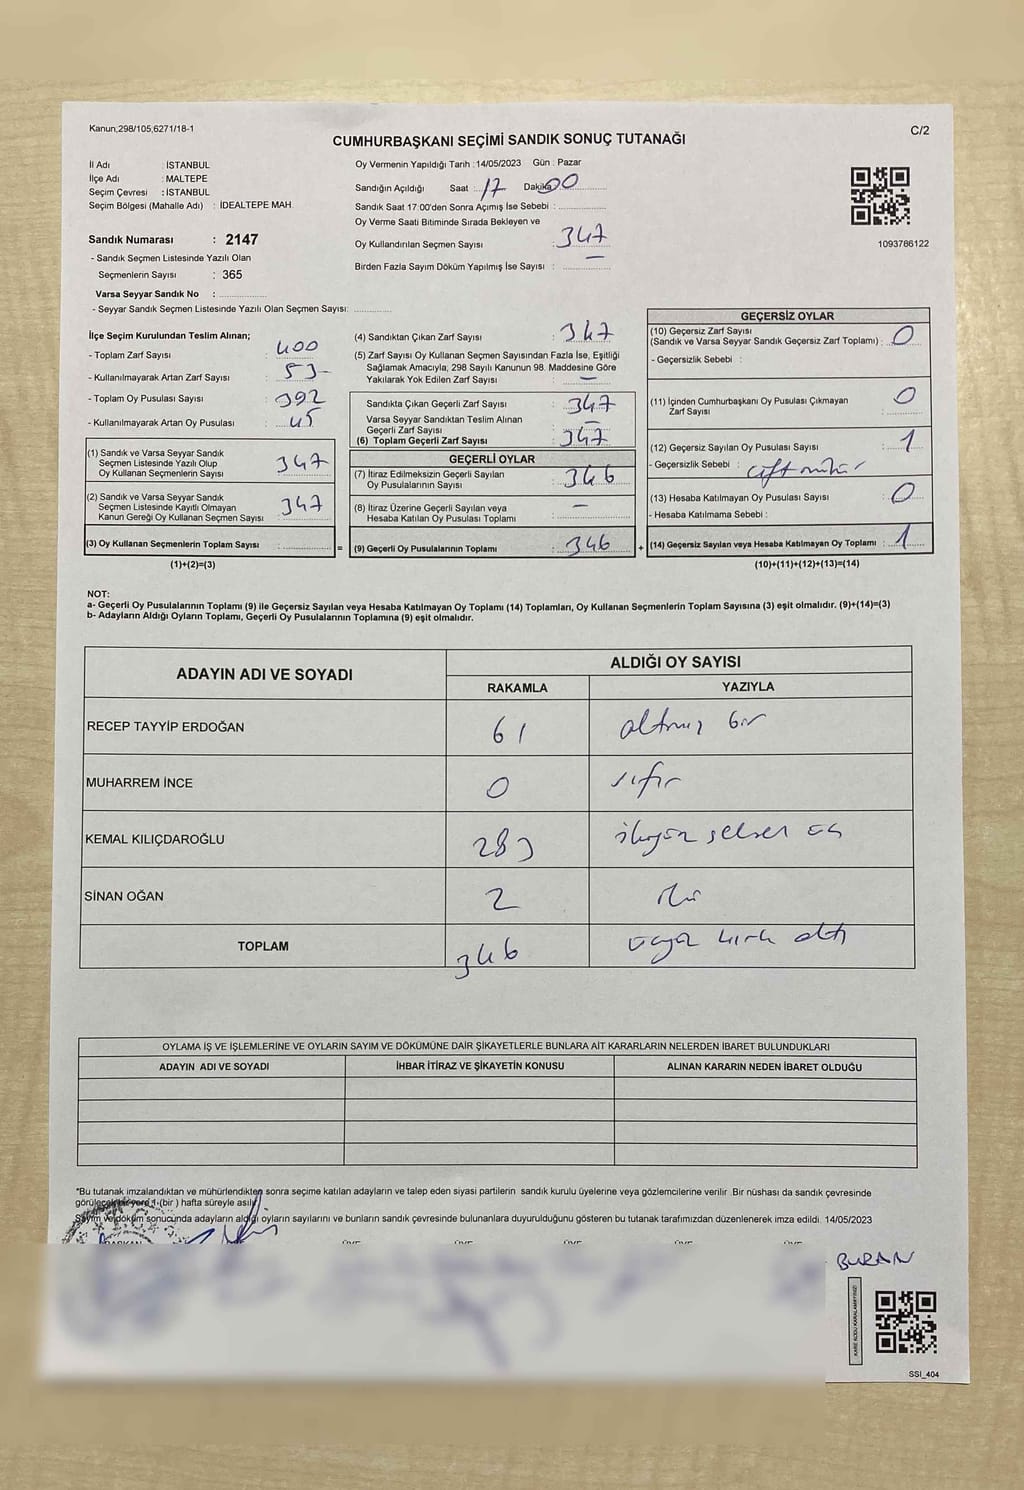 Kanun;298/105;6271/18-1
C/2
CUMHURBAŞKANI SEÇİMİ SANDIK SONUÇ TUTANAĞI
İl Adı : İSTANBUL
İlçe Adı : MALTEPE
Seçim Çevresi : İSTANBUL
Seçim Bölgesi (Mahalle Adı) : İDEALTEPE MAH.
Oy Vermenin Yapıldığı Tarih : 14/05/2023 Gün : Pazar
Sandığın Açıldığı Saat : 17 Dakika 00
Sandık Saat 17:00'den Sonra Açımış İse Sebebi :
Oy Verme Saati Bitiminde Sırada Bekleyen ve
Oy Kullandırılan Seçmen Sayısı : 347
Birden Fazla Sayım Döküm Yapılmış İse Sayısı : —
1093786122
Sandık Numarası : 2147
- Sandık Seçmen Listesinde Yazılı Olan
Seçmenlerin Sayısı : 365
Varsa Seyyar Sandık No :
- Seyyar Sandık Seçmen Listesinde Yazılı Olan Seçmen Sayısı:
İlçe Seçim Kurulundan Teslim Alınan;
- Toplam Zarf Sayısı : 400
- Kullanılmayarak Artan Zarf Sayısı : 53
- Toplam Oy Pusulası Sayısı : 392
- Kullanılmayarak Artan Oy Pusulası : 45
(1) Sandık ve Varsa Seyyar Sandık
Seçmen Listesinde Yazılı Olup
Oy Kullanan Seçmenlerin Sayısı : 347
(2) Sandık ve Varsa Seyyar Sandık
Seçmen Listesinde Kayıtlı Olmayan
Kanun Gereği Oy Kullanan Seçmen Sayısı : 347
(3) Oy Kullanan Seçmenlerin Toplam Sayısı :
(1)+(2)=(3)
(4) Sandıktan Çıkan Zarf Sayısı : 347
(5) Zarf Sayısı Oy Kullanan Seçmen Sayısından Fazla İse, Eşitliği
Sağlamak Amacıyla, 298 Sayılı Kanunun 98. Maddesine Göre
Yakılarak Yok Edilen Zarf Sayısı : —
Sandıkta Çıkan Geçerli Zarf Sayısı : 347
Varsa Seyyar Sandıktan Teslim Alınan
Geçerli Zarf Sayısı : —
(6) Toplam Geçerli Zarf Sayısı : 347
GEÇERLİ OYLAR
(7) İtiraz Edilmeksizin Geçerli Sayılan
Oy Pusulalarının Sayısı : 346
(8) İtiraz Üzerine Geçerli Sayılan veya
Hesaba Katılan Oy Pusulası Toplamı : —
= (9) Geçerli Oy Pusulalarının Toplamı : 346 +
GEÇERSİZ OYLAR
(10) Geçersiz Zarf Sayısı
(Sandık ve Varsa Seyyar Sandık Geçersiz Zarf Toplamı) : 0
- Geçersizlik Sebebi :
(11) İçinden Cumhurbaşkanı Oy Pusulası Çıkmayan
Zarf Sayısı : 0
(12) Geçersiz Sayılan Oy Pusulası Sayısı : 1
- Geçersizlik Sebebi : çift mühür
(13) Hesaba Katılmayan Oy Pusulası Sayısı : 0
- Hesaba Katılmama Sebebi :
(14) Geçersiz Sayılan veya Hesaba Katılmayan Oy Toplamı : 1
(10)+(11)+(12)+(13)=(14)
NOT:
a- Geçerli Oy Pusulalarının Toplamı (9) ile Geçersiz Sayılan veya Hesaba Katılmayan Oy Toplamı (14) Toplamları, Oy Kullanan Seçmenlerin Toplam Sayısına (3) eşit olmalıdır. (9)+(14)=(3)
b- Adayların Aldığı Oyların Toplamı, Geçerli Oy Pusulalarının Toplamına (9) eşit olmalıdır.
ADAYIN ADI VE SOYADI
ALDIĞI OY SAYISI
RAKAMLA YAZIYLA
RECEP TAYYİP ERDOĞAN 61 altmış bir
MUHARREM İNCE 0 sıfır
KEMAL KILIÇDAROĞLU 283 ikiyüz seksen üç
SİNAN OĞAN 2 iki
TOPLAM 346 üçyüz kırk altı
OYLAMA İŞ VE İŞLEMLERİNE VE OYLARIN SAYIM VE DÖKÜMÜNE DAİR ŞİKAYETLERLE BUNLARA AİT KARARLARIN NELERDEN İBARET BULUNDUKLARI
ADAYIN ADI VE SOYADI İHBAR İTİRAZ VE ŞİKAYETİN KONUSU ALINAN KARARIN NEDEN İBARET OLDUĞU
*Bu tutanak imzalandıktan ve mühürlendikten sonra seçime katılan adayların ve talep eden siyasi partilerin sandık kurulu üyelerine veya gözlemcilerine verilir .Bir nüshası da sandık çevresinde
görülecek bir yere 1 (bir ) hafta süreyle asılır.
Sayım ve döküm sonucunda adayların aldığı oyların sayılarını ve bunların sandık çevresinde bulunanlara duyurulduğunu gösteren bu tutanak tarafımızdan düzenlenerek imza edildi. 14/05/2023
BAŞKAN ÜYE ÜYE ÜYE ÜYE ÜYE
BURAN
KARE KODU KARALAMAYINIZ!
SSI_404